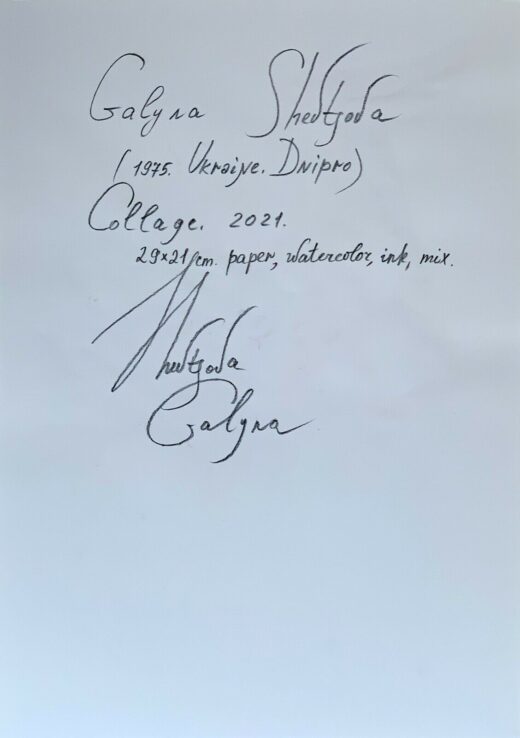 Galyna Shevtsova
(1975. Ukraine. Dnipro)
Collage. 2021.
29x21 cm. paper, watercolor, ink, mix.
Galyna